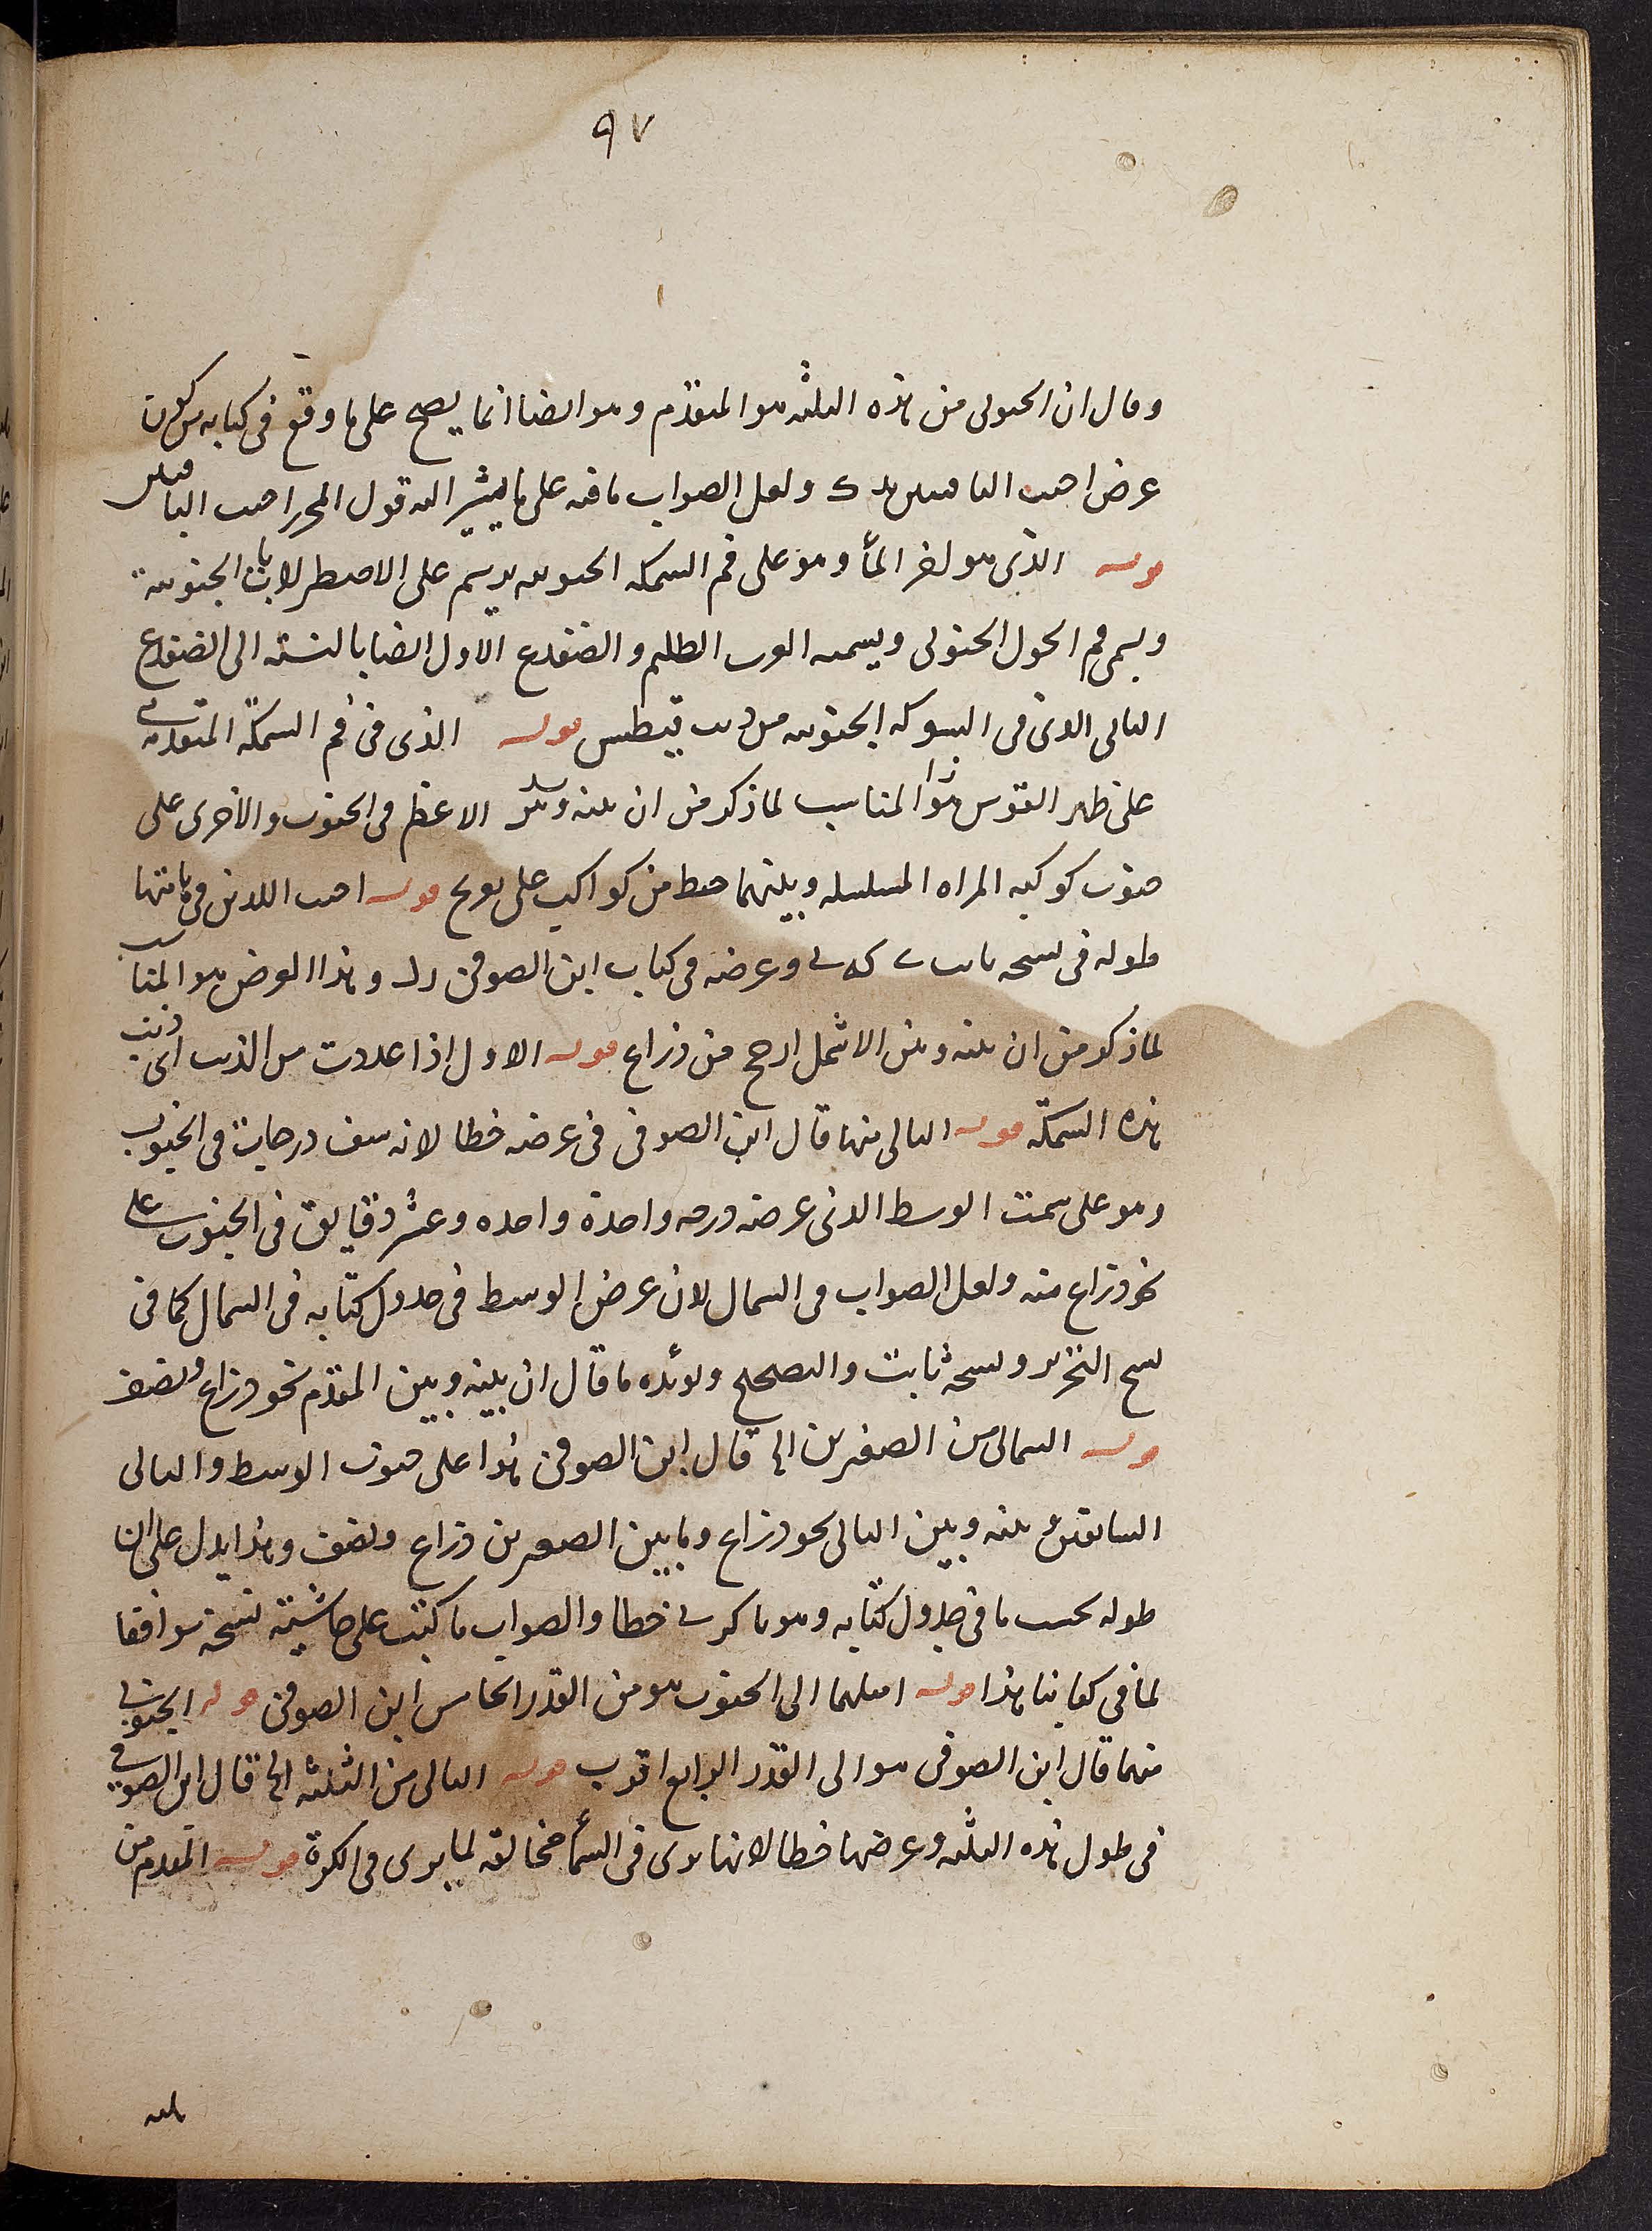 ٩٧
وقال ان الجنوبى من هذه الثلثه هو المتقدم وهو ايضا انما يصح على ما وقع فى كتابه من كون
عرض احد الباقيين ولعل الصواب ما فيه على ما يشير اليه قول المحرر احد الباقيين
قوله الذى هو اخر المأ وهو على فم السمكه الجنوبيه يرسم على الاصطرلابات الجنوبية
ويسمى فم الحوت الجنوبى ويسميه العرب الظليم والضفدع الاول ايضا بالنسبه الى الضفدع
التالى الذى فى الشوكه الجنوبيه من ذنب قيطس قوله الذى فى فم السمكة المتقدمة
على ظهر الفرس هذا المناسب لما ذكر من ان بينه وبين الاعظم فى الجنوب والاخرى على
جنوب كوكبه المراه المسلسله وبينهما خيط من كواكب على تعريج قوله احد اللذين فى هامتها
طوله فى نسخه ثابت وعرضه فى كتاب ابن الصوفى وهذا العرض هو المناسب
لما ذكر من ان بينه وبين الاشمل ارجح من ذراع قوله الاول اذا عددت من الذنب اى ذنب
هذه السمكة قوله التالى منها قال ابن الصوفى فى عرضه خطا لانه درجات فى الجنوب
وهو على سمت الوسط الذى عرضه درجه واحدة واحده وعشر دقايق فى الجنوب على
نحو ذراع منه ولعل الصواب فى الشمال لان عرض الوسط فى جدول كتابه فى الشمال كما فى
نسخ التحرير ونسخة ثابت والتصحيح ويؤيده ما قال ان بينه وبين المتقدم نحو ذراع ونصف
قوله الشمالى من الصغيرين الخ قال ابن الصوفى هذا على جنوب الوسط والتالى
السابقين بينه وبين التالى نحو ذراع وما بين الصغيرين ذراع ونصف وهذا يدل على ان
طوله بحسب ما فى جدول كتابه وهو خطا والصواب ما كتبت على حاشية نسخة موافقا
لما فى كتابنا هذا قوله اميلهما الى الجنوب هو من القدر الخامس ابن الصوفى قوله الجنوبى
منهما قال ابن الصوفى هو الى القدر الرابع اقرب قوله التالى من الثلثه الخ قال ابن الصوفى
فى طول هذه الثلثه وعرضها خطا لانها يرى فى السمأ مخالفه لما يرى فى الكرة قوله المتقدم من